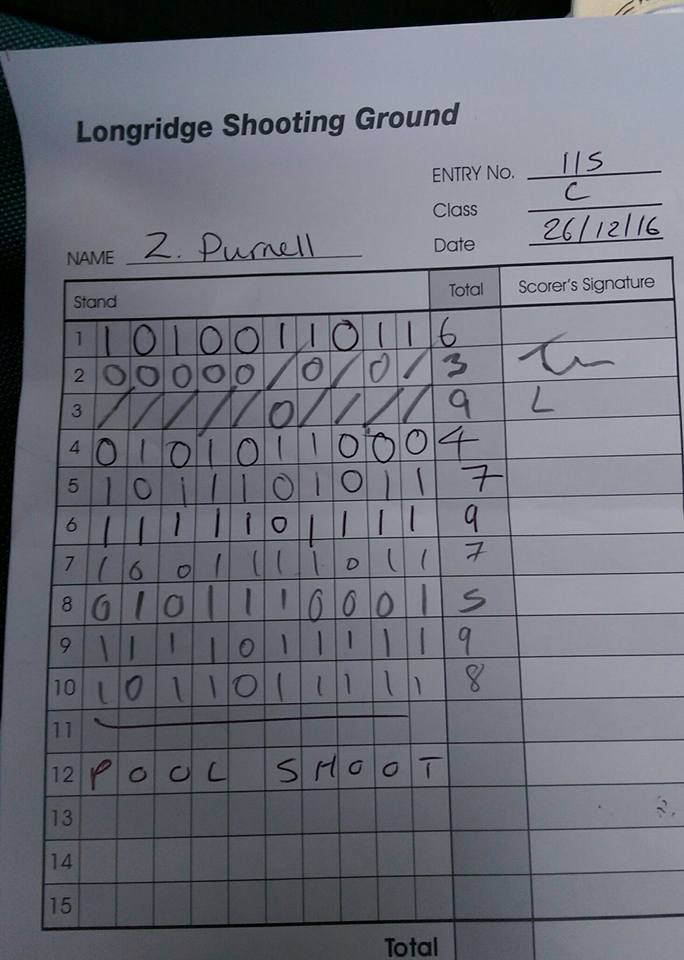 Longridge Shooting Ground
ENTRY No. 115
Class C
NAME Z. Purnell Date 26/12/16
Stand Total Scorer's Signature
1 1 0 1 0 0 1 1 0 1 1 6
2 0 0 0 0 0 / 0 / 0 / 3
3 / / / / / 0 / / / / 9 L
4 0 1 0 1 0 1 1 0 0 0 4
5 1 0 1 1 1 0 1 0 1 1 7
6 1 1 1 1 1 0 1 1 1 1 9
7 1 0 0 1 1 1 1 0 1 1 7
8 0 1 0 1 1 1 0 0 0 1 5
9 1 1 1 1 0 1 1 1 1 1 9
10 1 0 1 1 0 1 1 1 1 1 8
11
12 POOL SHOOT
13
14
15
Total